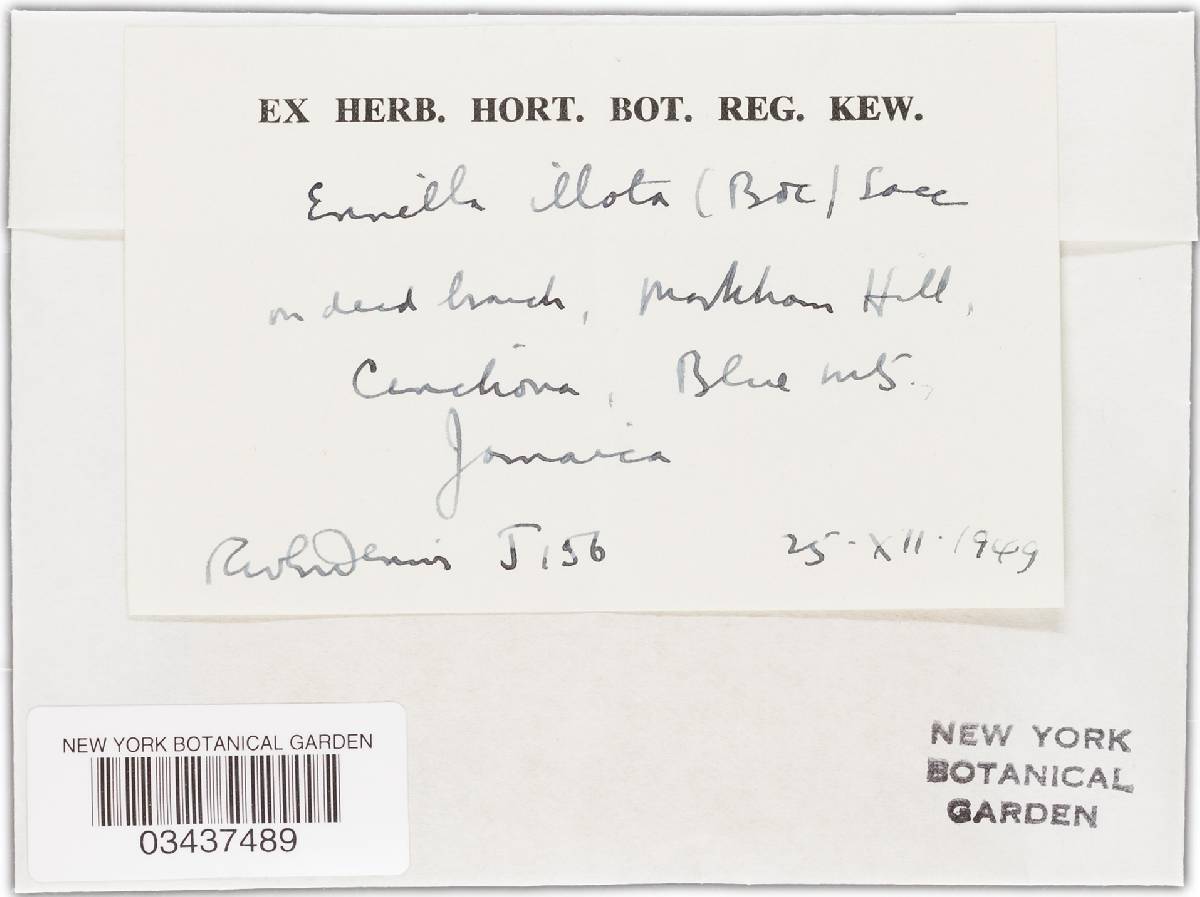 EX HERB. HORT. BOT. REG. KEW.
Erinella illota (B & C) Sacc
on dead branch, Markham Hill,
Cinchona, Blue Mts.,
Jamaica
RWG Dennis J 156 25-XII-1949
NEW YORK BOTANICAL GARDEN
03437489
NEW YORK
BOTANICAL
GARDEN